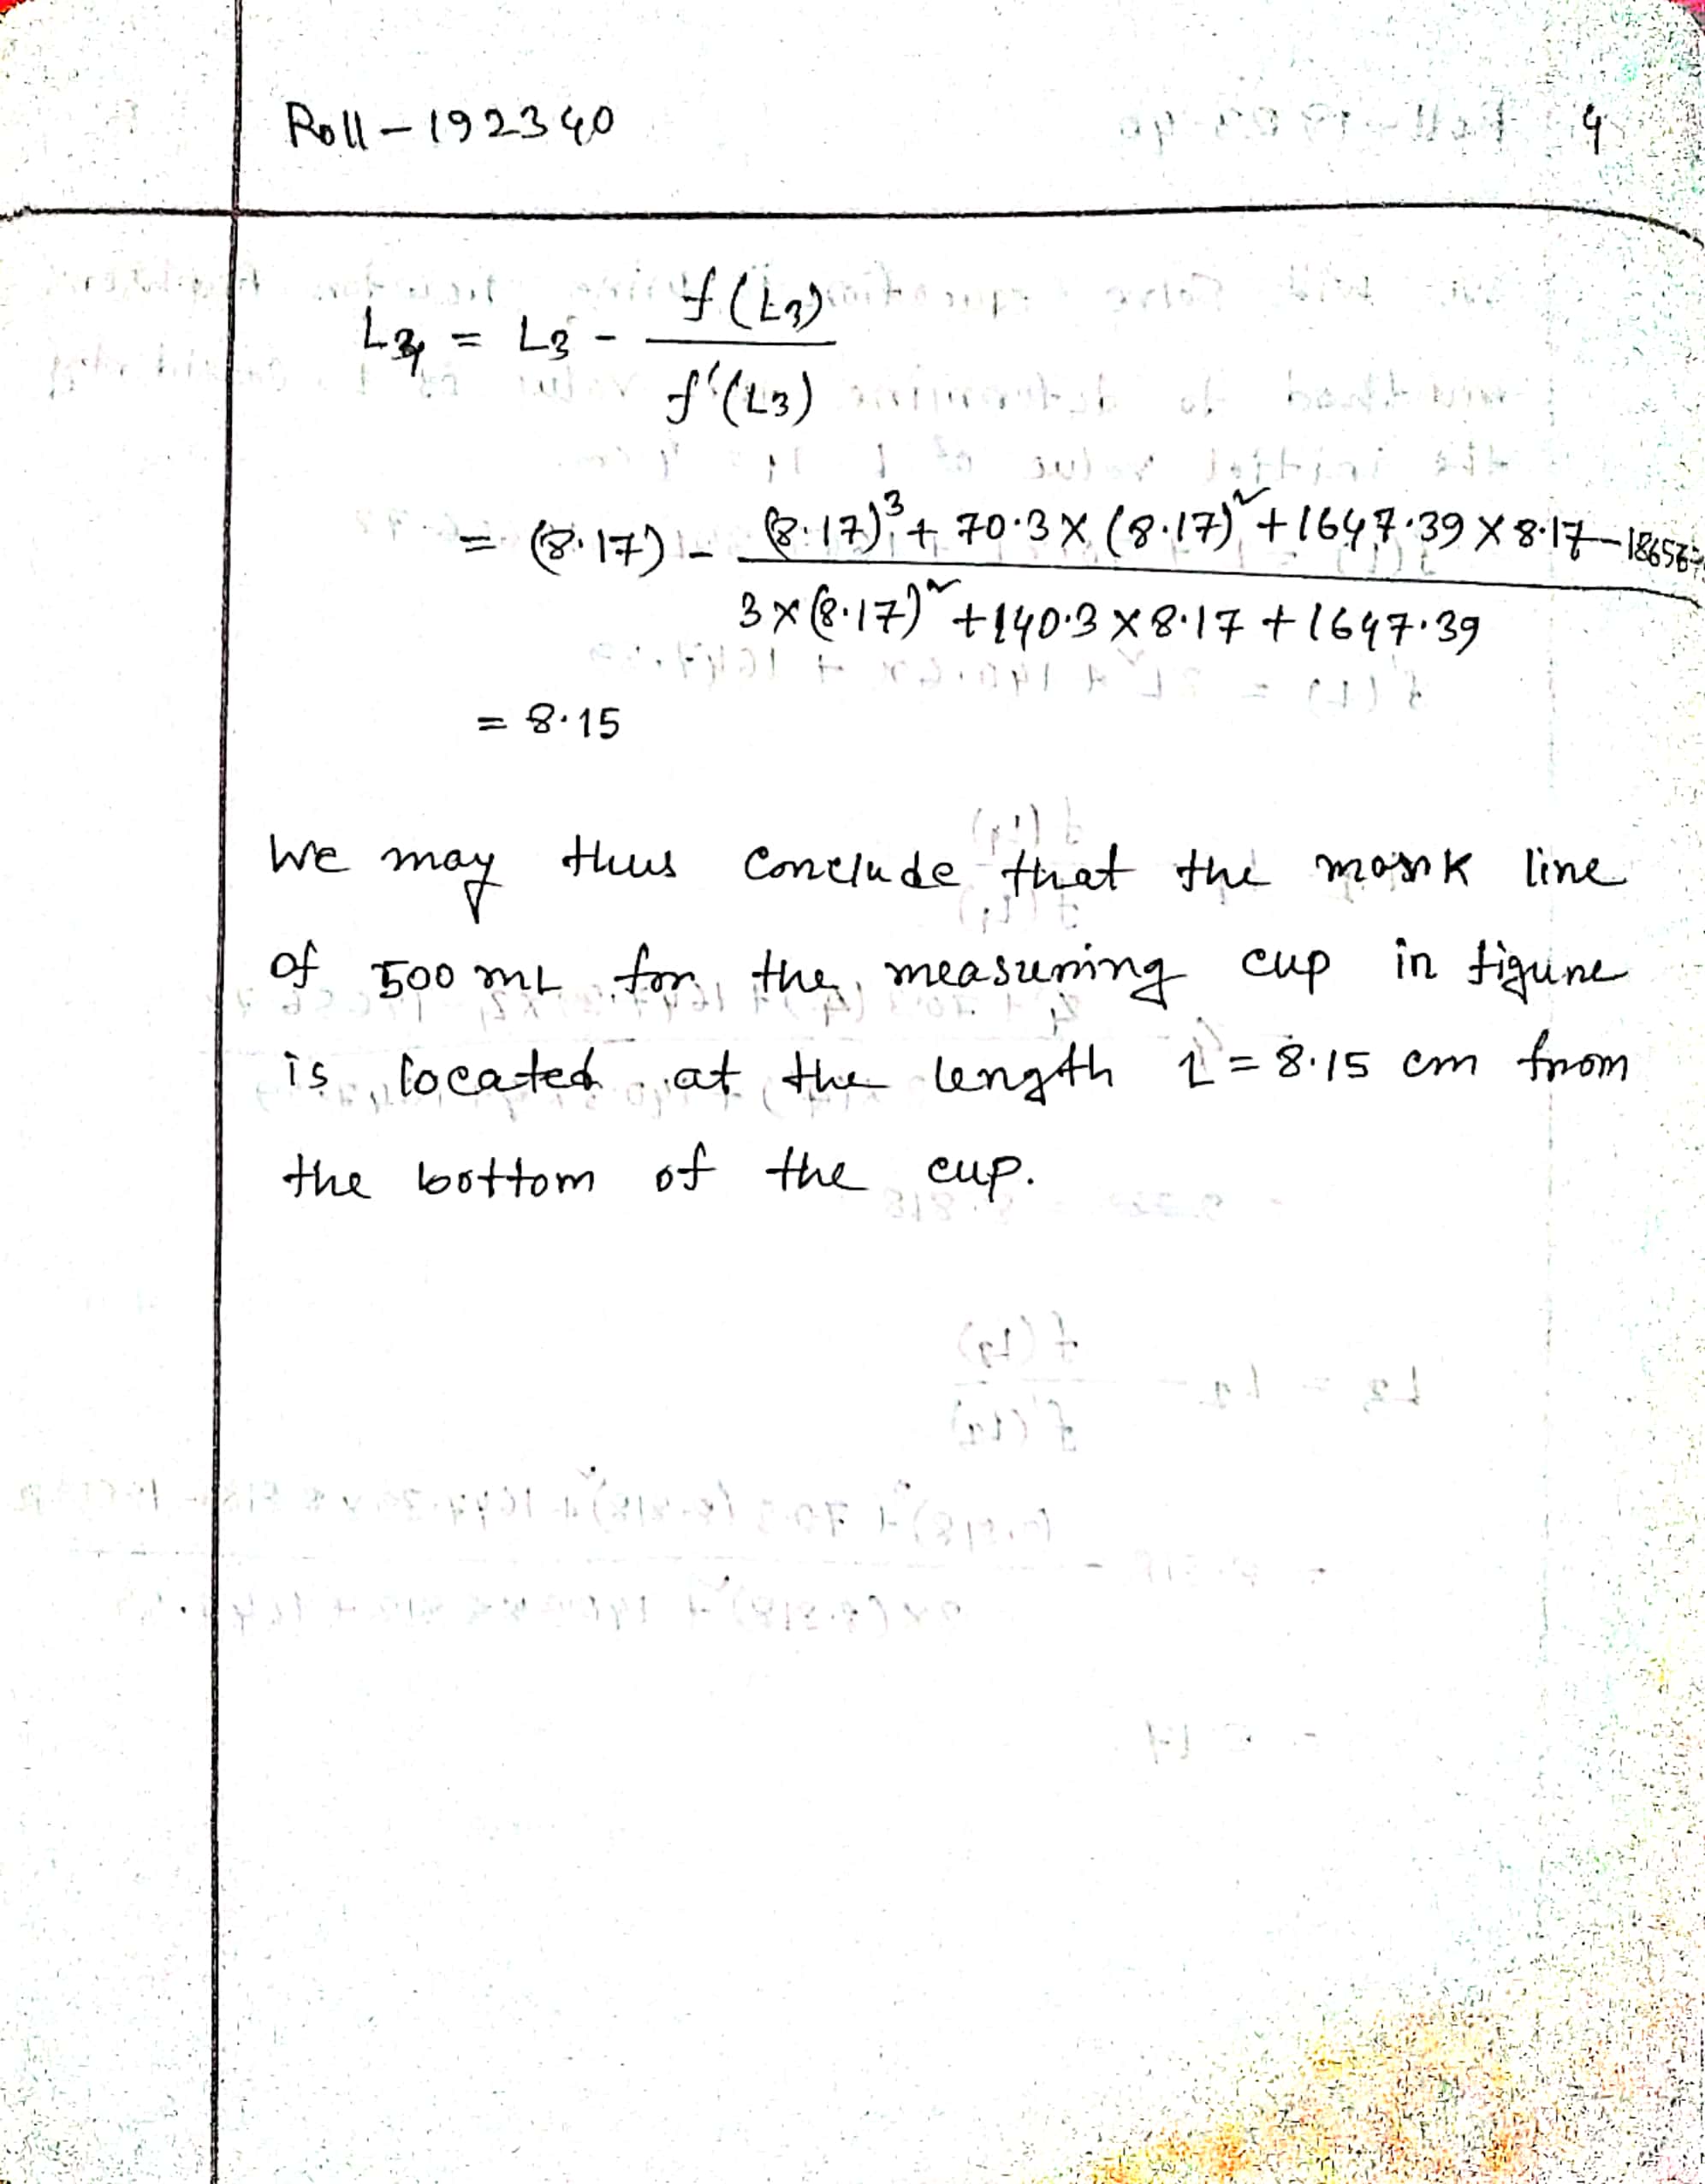 Roll - 192340
4
L4 = L3 - f(L3) / f'(L3)
= (8.17) - (8.17)³ + 70.3 × (8.17)² + 1647.39 × 8.17 - 18656.
3 × (8.17)² + 140.3 × 8.17 + 1647.39
= 8.15
We may thus conclude that the mark line
of 500 mL for the measuring cup in figure
is located at the length L = 8.15 cm from
the bottom of the cup.